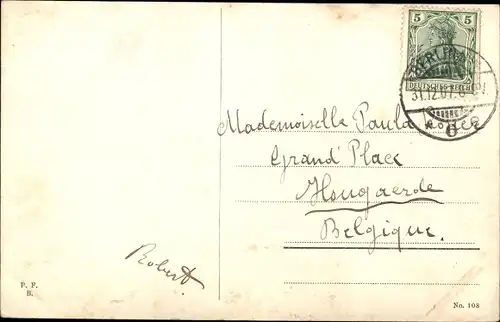 5 5
DEUTSCHES REICH
BERLIN
31.12.07. 8
Mademoiselle Paula
Grand' Place
Hougaerde
Belgique.
Robert
P. F.
B.
No. 103